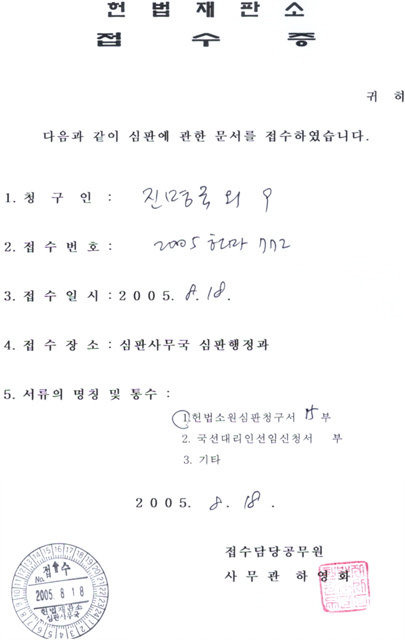 헌 법 재 판 소
접 수 증
귀 하
다음과 같이 심판에 관한 문서를 접수하였습니다.
1. 청 구 인 : 진명국 외
2. 접 수 번 호 : 2005 헌마 772
3. 접 수 일 시 : 2005. 8. 18.
4. 접 수 장 소 : 심판사무국 심판행정과
5. 서류의 명칭 및 통수 :
1. 헌법소원심판청구서 부
2. 국선대리인선임신청서 부
3. 기타
2005. 8. 18.
접수담당공무원
사 무 관 하 영 화
접 수
No.
2005 8 18
헌법재판소
심판사무국